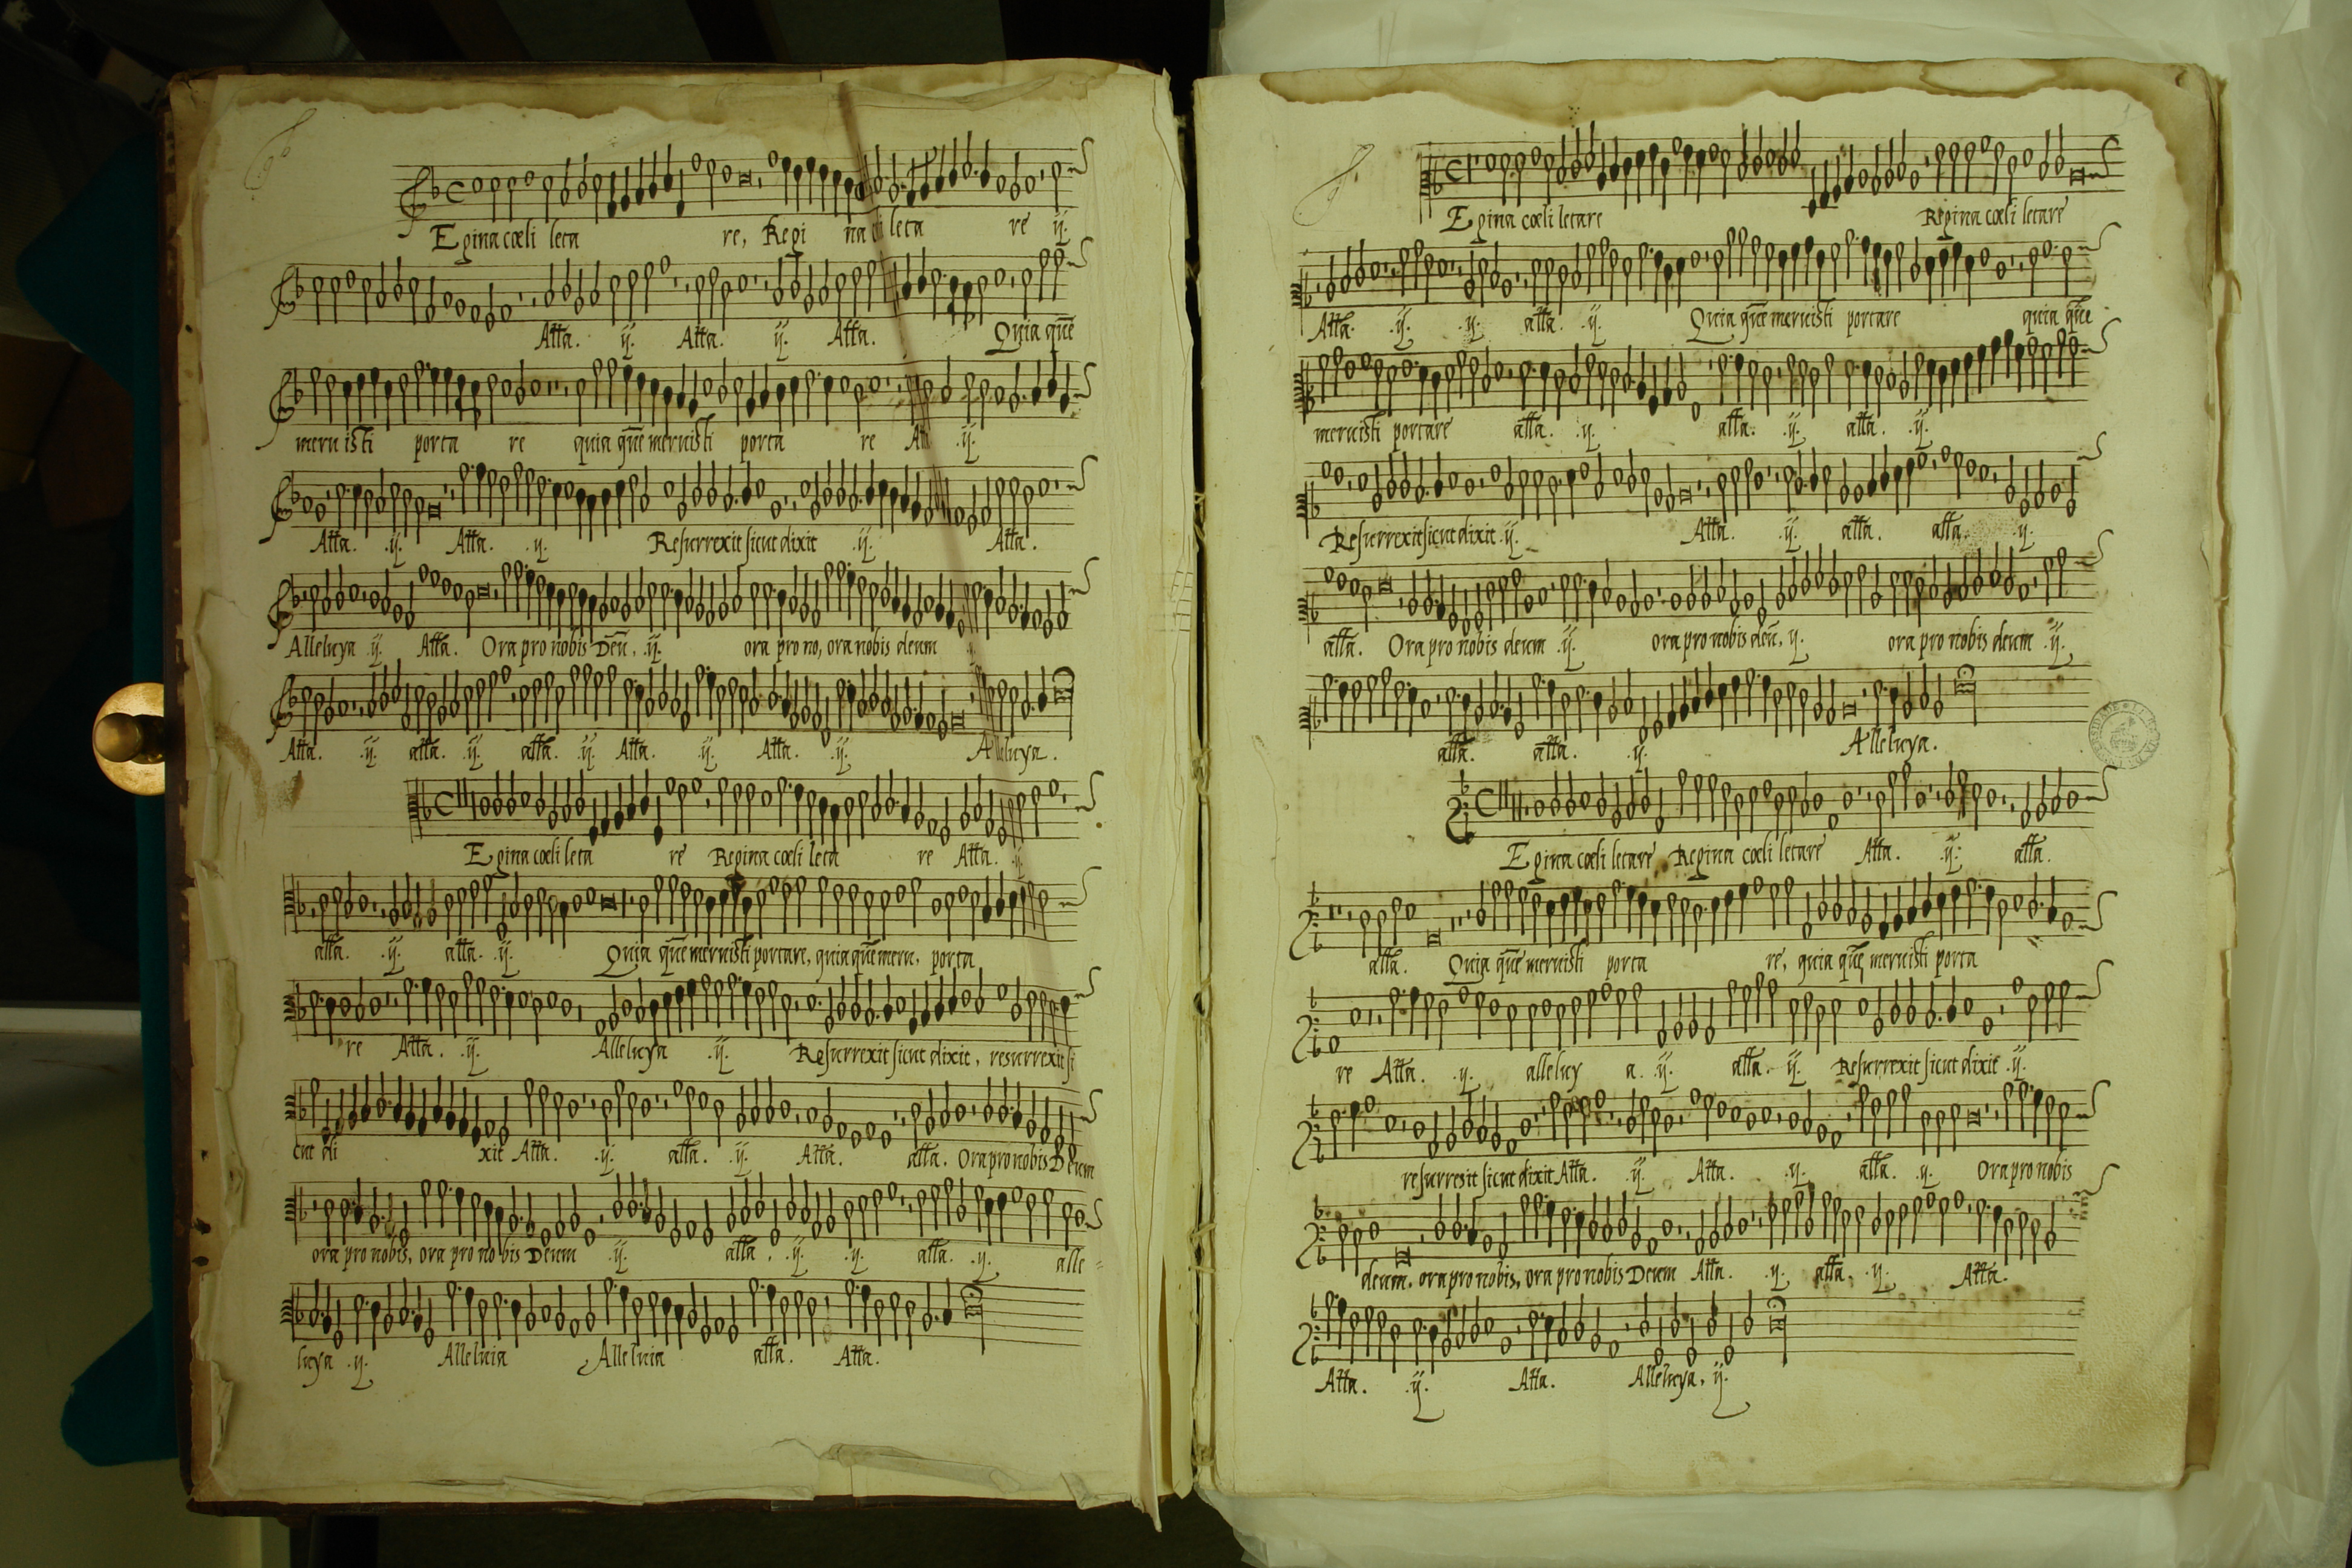 Egina cœli leta re, Regi na cœli leta re ij.
Atta. ij. Atta. ij. Atta. Quia quē
meruisti porta re quia quē meruisti porta re ij.
Atta. ij. Atta. ij. Resurrexit sicut dixit ij. Atta.
Alleluya ij. Atta. Ora pro nobis Deū, ij. ora pro no, ora nobis deum
Atta. ij. atta. ij. atta. ij. Atta. ij. Atta. ij. Alleluya.
Egina cœli leta re Regina cœli leta re Atta. ij.
atta. ij. atta. ij. Quia quē meruisti portare, quia quē meru, porta
re Atta. ij. Alleluya ij. Resurrexit sicut dixit, resurrexit si
cut di xit Atta. ij. atta. ij. Atta. atta. Ora pro nobis Deum
ora pro nobis, ora pro no bis Deum ij. atta. ij. ij. atta. ij. alle=
luya ij. Alleluia Alleluia atta. Atta.
Egina cœli letare Regina cœli letare
Atta. ij. ij. atta. ij. Quia quē meruisti portare quia quē
meruisti portare atta. ij. atta. ij. atta. ij.
Resurrexit sicut dixit ij. Atta. ij. atta. atta. ij.
atta. Ora pro nobis deum ij. ora pro nobis deū, ij. ora pro nobis deum ij.
atta. atta. ij. Alleluya.
Egina cœli letare Regina cœli letare Atta. ij. atta.
atta. Quia quē meruisti porta re, quia quē meruisti porta
re Atta. ij. alleluy a. ij. atta. ij. Resurrexit sicut dixit ij.
resurrexit sicut dixit Atta. ij. Atta. ij. atta. ij. Ora pro nobis
deum. ora pro nobis, ora pro nobis Deum Atta. ij. atta, ij. Atta.
Atta. ij. Atta. Alleluya, ij.